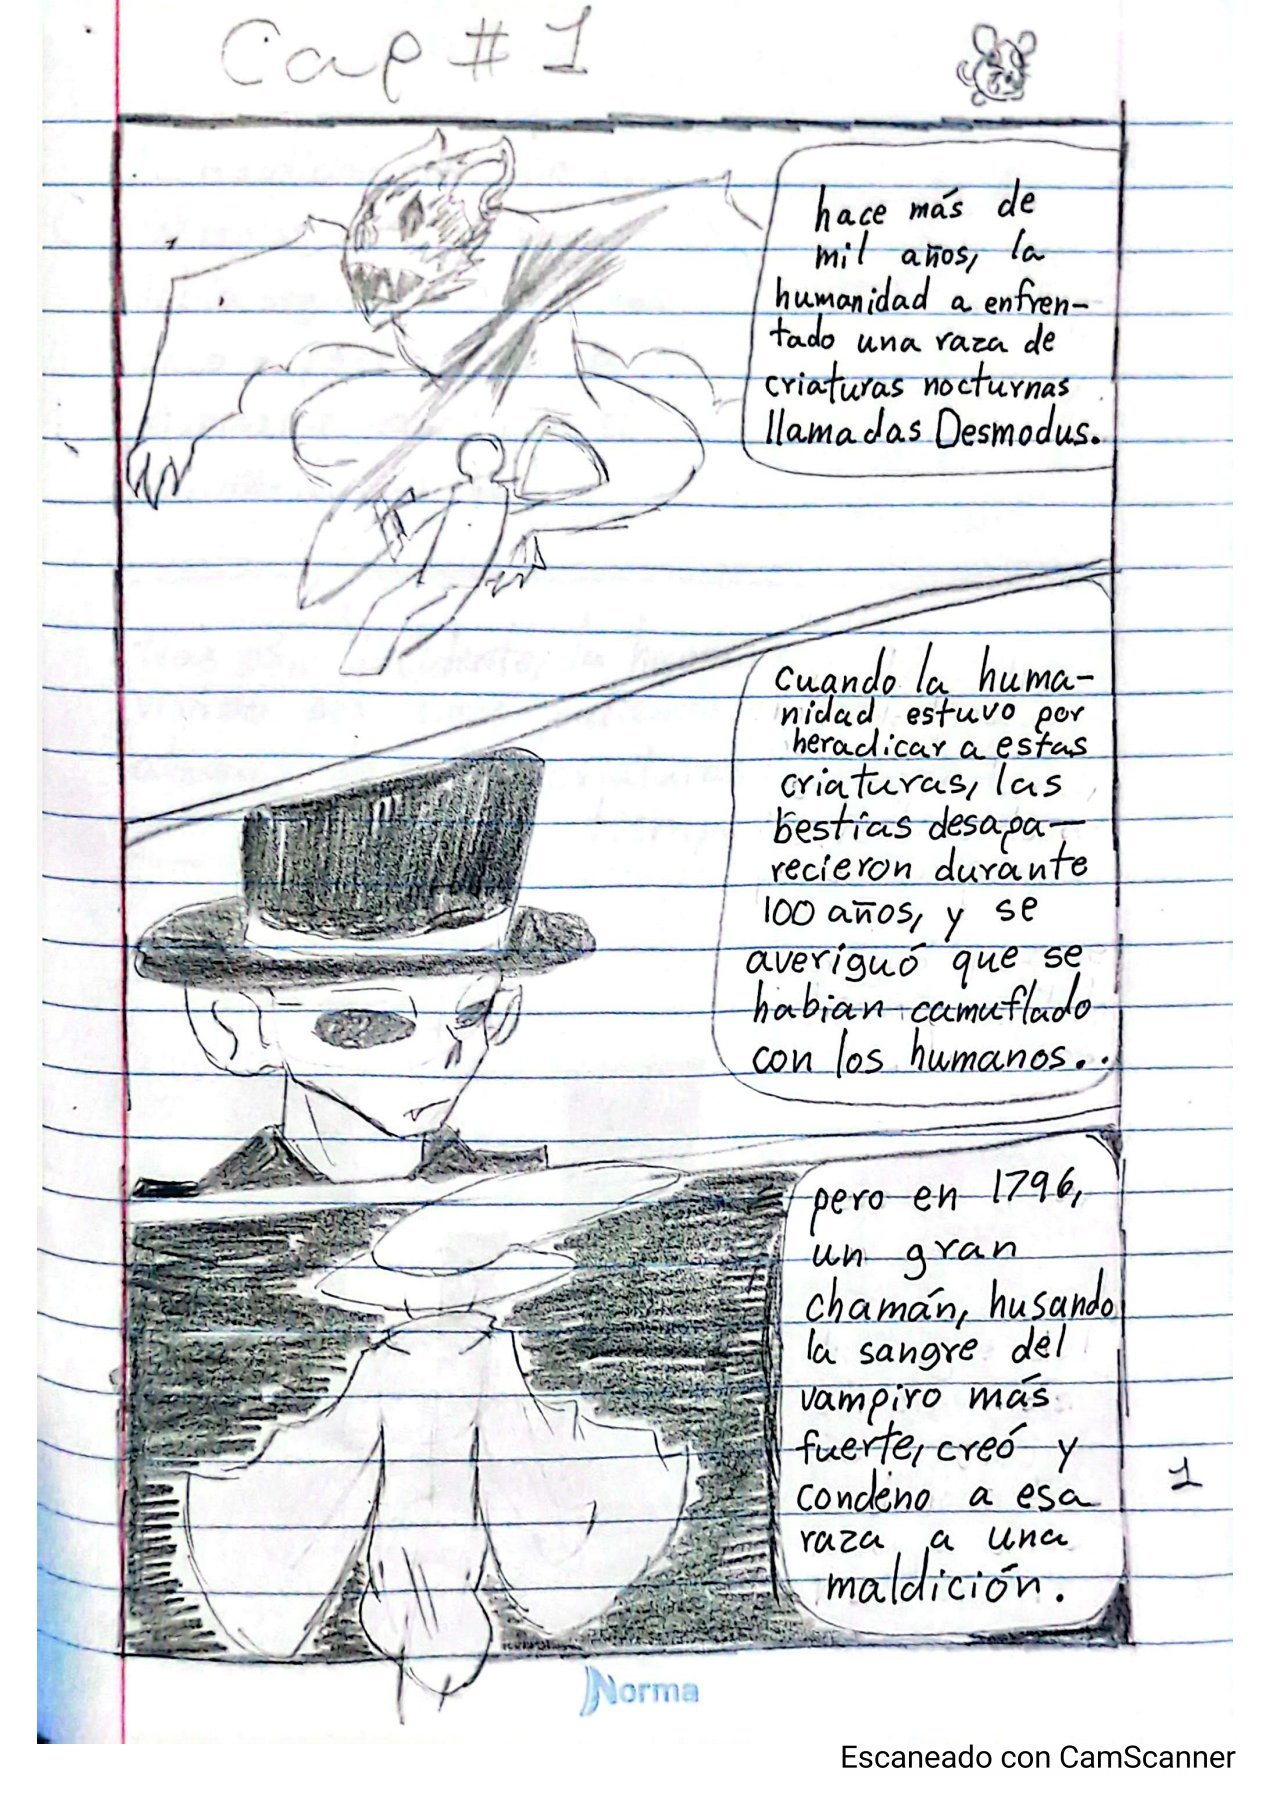 Cap # 1
hace más de
mil años, la
humanidad a enfren-
tado una raza de
criaturas nocturnas
llamadas Desmodus.
cuando la huma-
nidad estuvo por
heradicar a estas
criaturas, las
bestias desapa-
recieron durante
100 años, y se
averiguó que se
habian camuflado
con los humanos...
pero en 1796,
un gran
chamán, husando
la sangre del
vampiro más
fuerte, creó y
condeno a esa
raza a una
maldición.
1
Norma
Escaneado con CamScanner